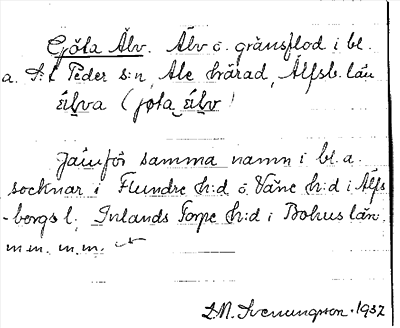 Göta Älv. Älv o. gränsflod i bl.
a. S:t Peder s:n, Ale härad, Älfsb. län
älva (jøta älv)
Jämför samma namn i bl. a.
socknar i Flundre h:d o. Väne h:d i Älfs
-borgs l., Inlands Torpe h:d i Bohus län.
m.m. m.m.
D.N. Svenungson. 1937